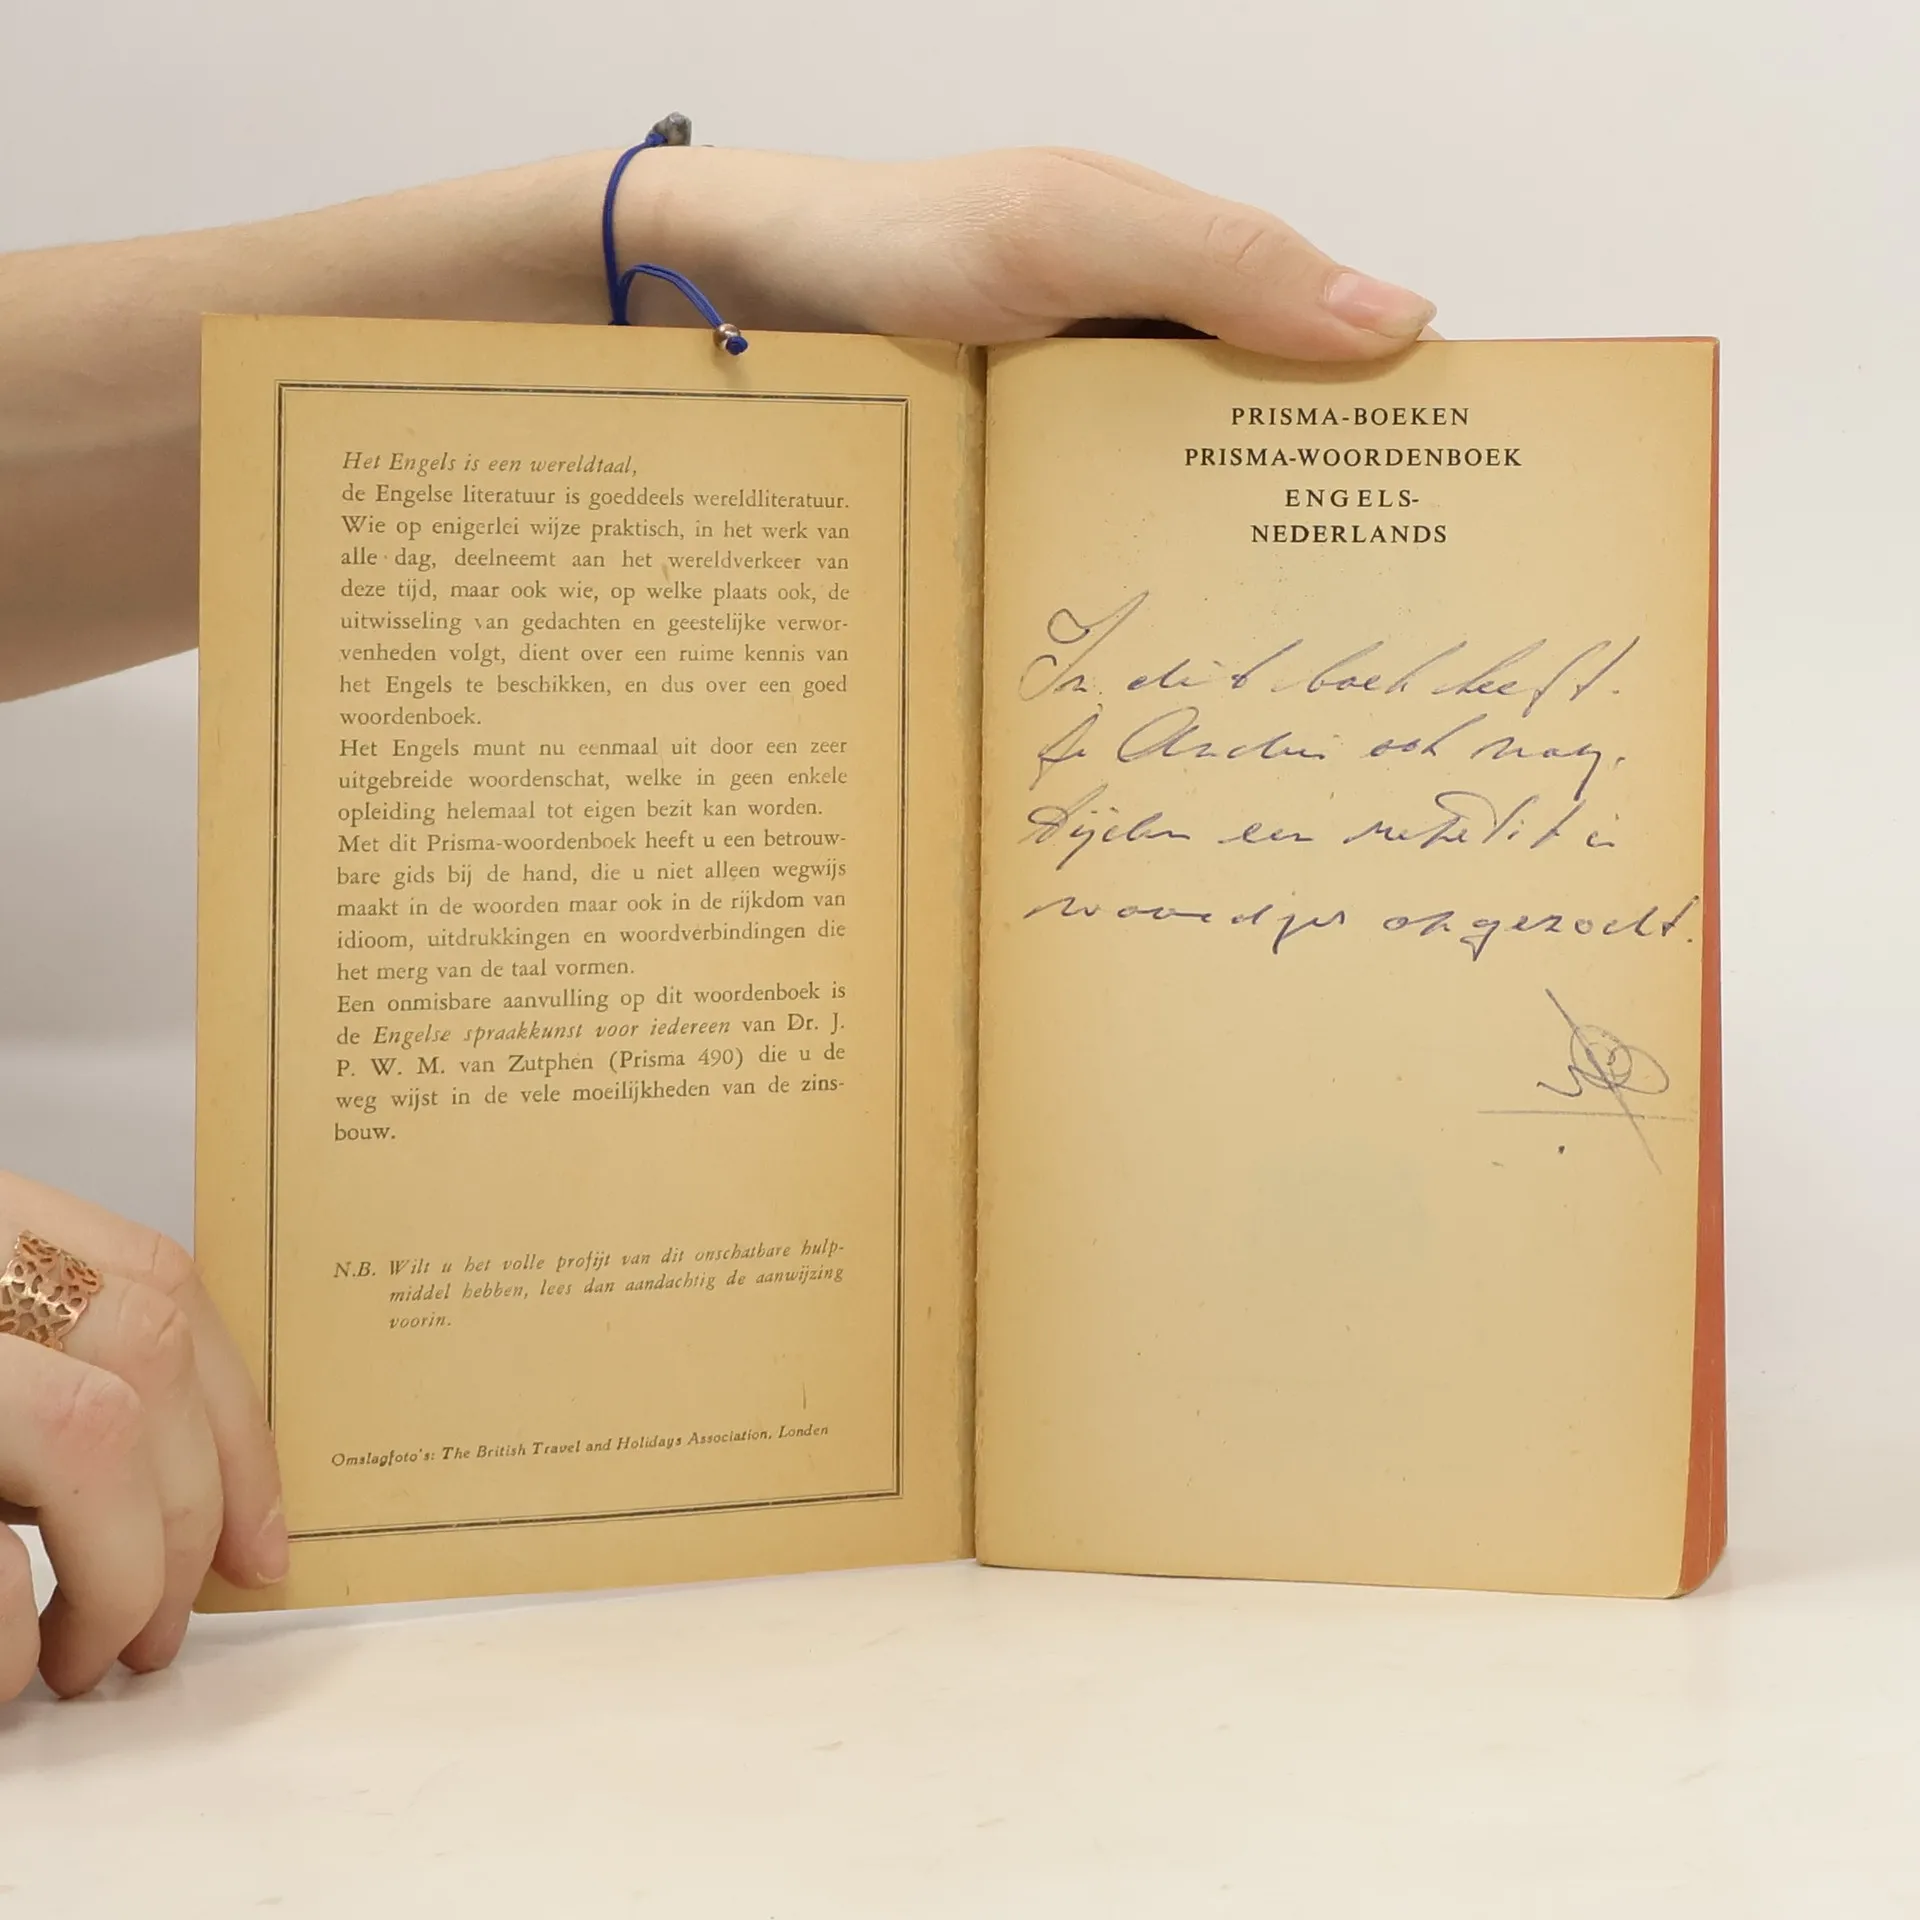 Het Engels is een wereldtaal,
de Engelse literatuur is goeddeels wereldliteratuur.
Wie op enigerlei wijze praktisch, in het werk van
alle dag, deelneemt aan het wereldverkeer van
deze tijd, maar ook wie, op welke plaats ook, de
uitwisseling van gedachten en geestelijke verwor-
venheden volgt, dient over een ruime kennis van
het Engels te beschikken, en dus over een goed
woordenboek.
Het Engels munt nu eenmaal uit door een zeer
uitgebreide woordenschat, welke in geen enkele
opleiding helemaal tot eigen bezit kan worden.
Met dit Prisma-woordenboek heeft u een betrouw-
bare gids bij de hand, die u niet alleen wegwijs
maakt in de woorden maar ook in de rijkdom van
idioom, uitdrukkingen en woordverbindingen die
het merg van de taal vormen.
Een onmisbare aanvulling op dit woordenboek is
de Engelse spraakkunst voor iedereen van Dr. J.
P. W. M. van Zutphen (Prisma 490) die u de
weg wijst in de vele moeilijkheden van de zins-
bouw.
N.B. Wilt u het volle profijt van dit onschatbare hulp-
middel hebben, lees dan aandachtig de aanwijzing
voorin.
Omslagfoto's: The British Travel and Holidays Association, Londen
PRISMA-BOEKEN
PRISMA-WOORDENBOEK
ENGELS-
NEDERLANDS
In dit boek heeft
ook
woordjes opgezocht.